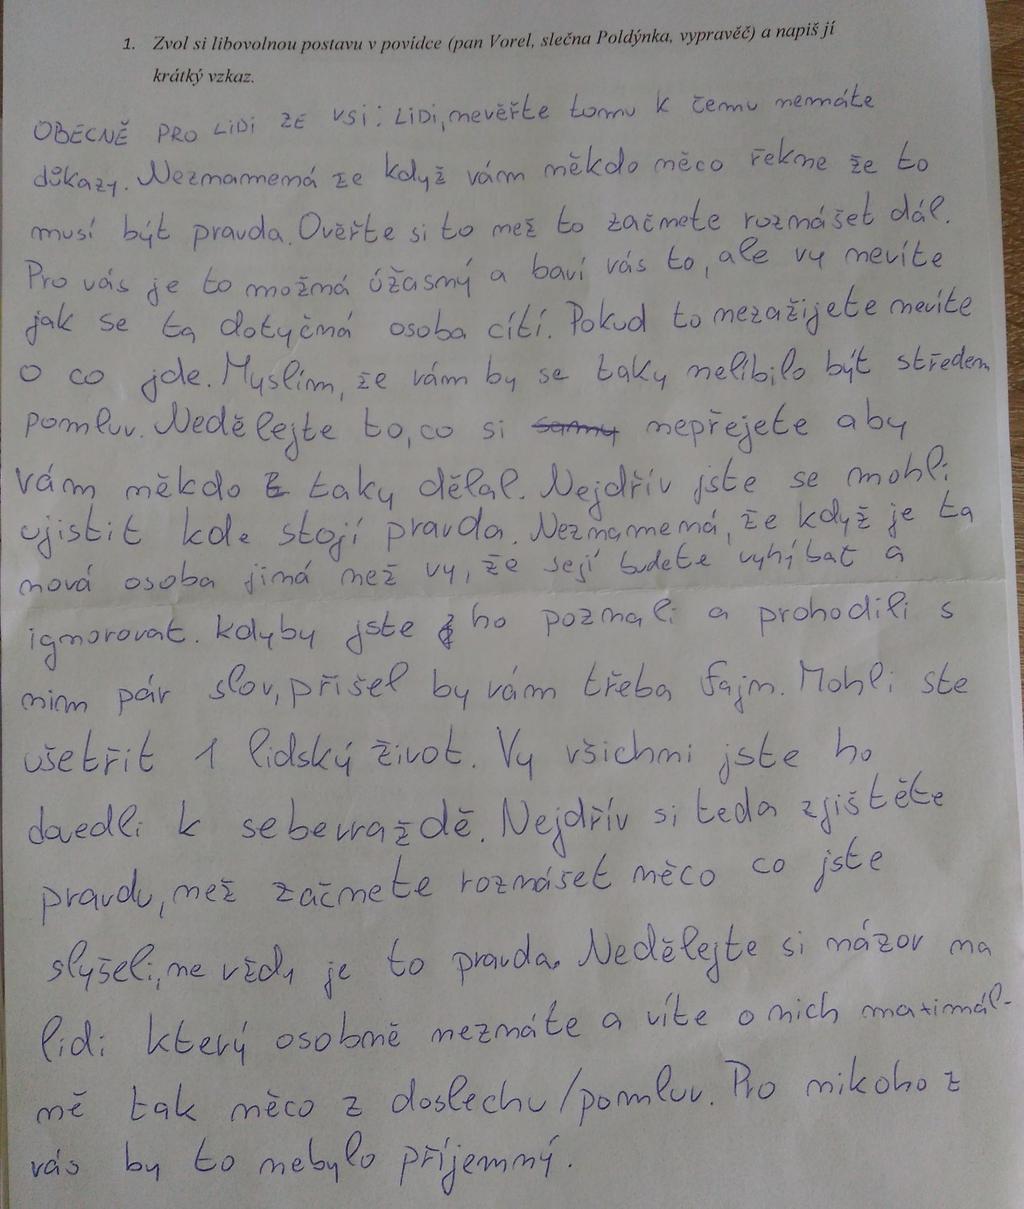 1. Zvol si libovolnou postavu v povídce (pan Vorel, slečna Poldýnka, vypravěč) a napiš jí
krátký vzkaz.
OBECNĚ PRO LIDI ZE VSI: LIDI, nevěřte tomu k čemu nemáte
důkazy. Neznamemená že když vám někdo něco řekne že to
musí být pravda. Ověřte si to než to začnete roznášet dál.
Pro vás je to možná úžasný a baví vás to, ale vy nevíte
jak se ta dotyčná osoba cítí. Pokud to nezažijete nevíte
o co jde. Myslím, že vám by se taky nelíbilo být středem
pomluv. Nedělejte to, co si samy nepřejete aby
vám někdo taky dělal. Nejdřív jste se mohli
ujistit kde stojí pravda. Neznamemená, že když je ta
nová osoba jiná než vy, že se jí budete vyhýbat a
ignorovat. Kdyby jste ho poznali a prohodili s
nim pár slov, přišel by vám třeba fajn. Mohli ste
ušetřit 1 lidský život. Vy všichni jste ho
dovedli k sebevraždě. Nejdřív si teda zjištěte
pravdu, než začnete roznáset něco co jste
slyšeli, ne vždy je to pravda. Nedělejte si názor na
lidi který osobně neznáte a víte o nich maximál-
ně tak něco z doslechu/pomluv. Pro nikoho z
vás by to nebylo příjemný.